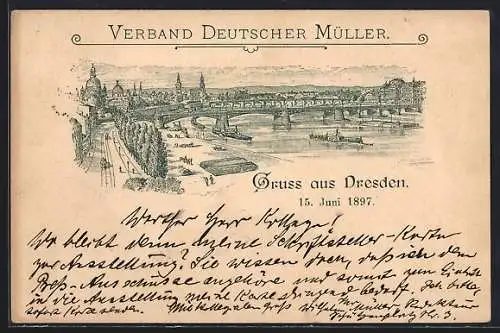 VERBAND DEUTSCHER MÜLLER.
Gruss aus Dresden.
15. Juni 1897.
Werther Herr Kollege!
Wo bleibt denn meine Schriftsteller-Karte
zur Ausstellung? Sie wissen doch, daß ich dem
Preß-Ausschusse angehöre und somit zum Eintritt
in die Ausstellung meine Karte dringend bedarf. Ich bitte,
sofort Karte senden. Mit kollegialem Gruß Wilhelm Müller Redakteur
Nr. 3.